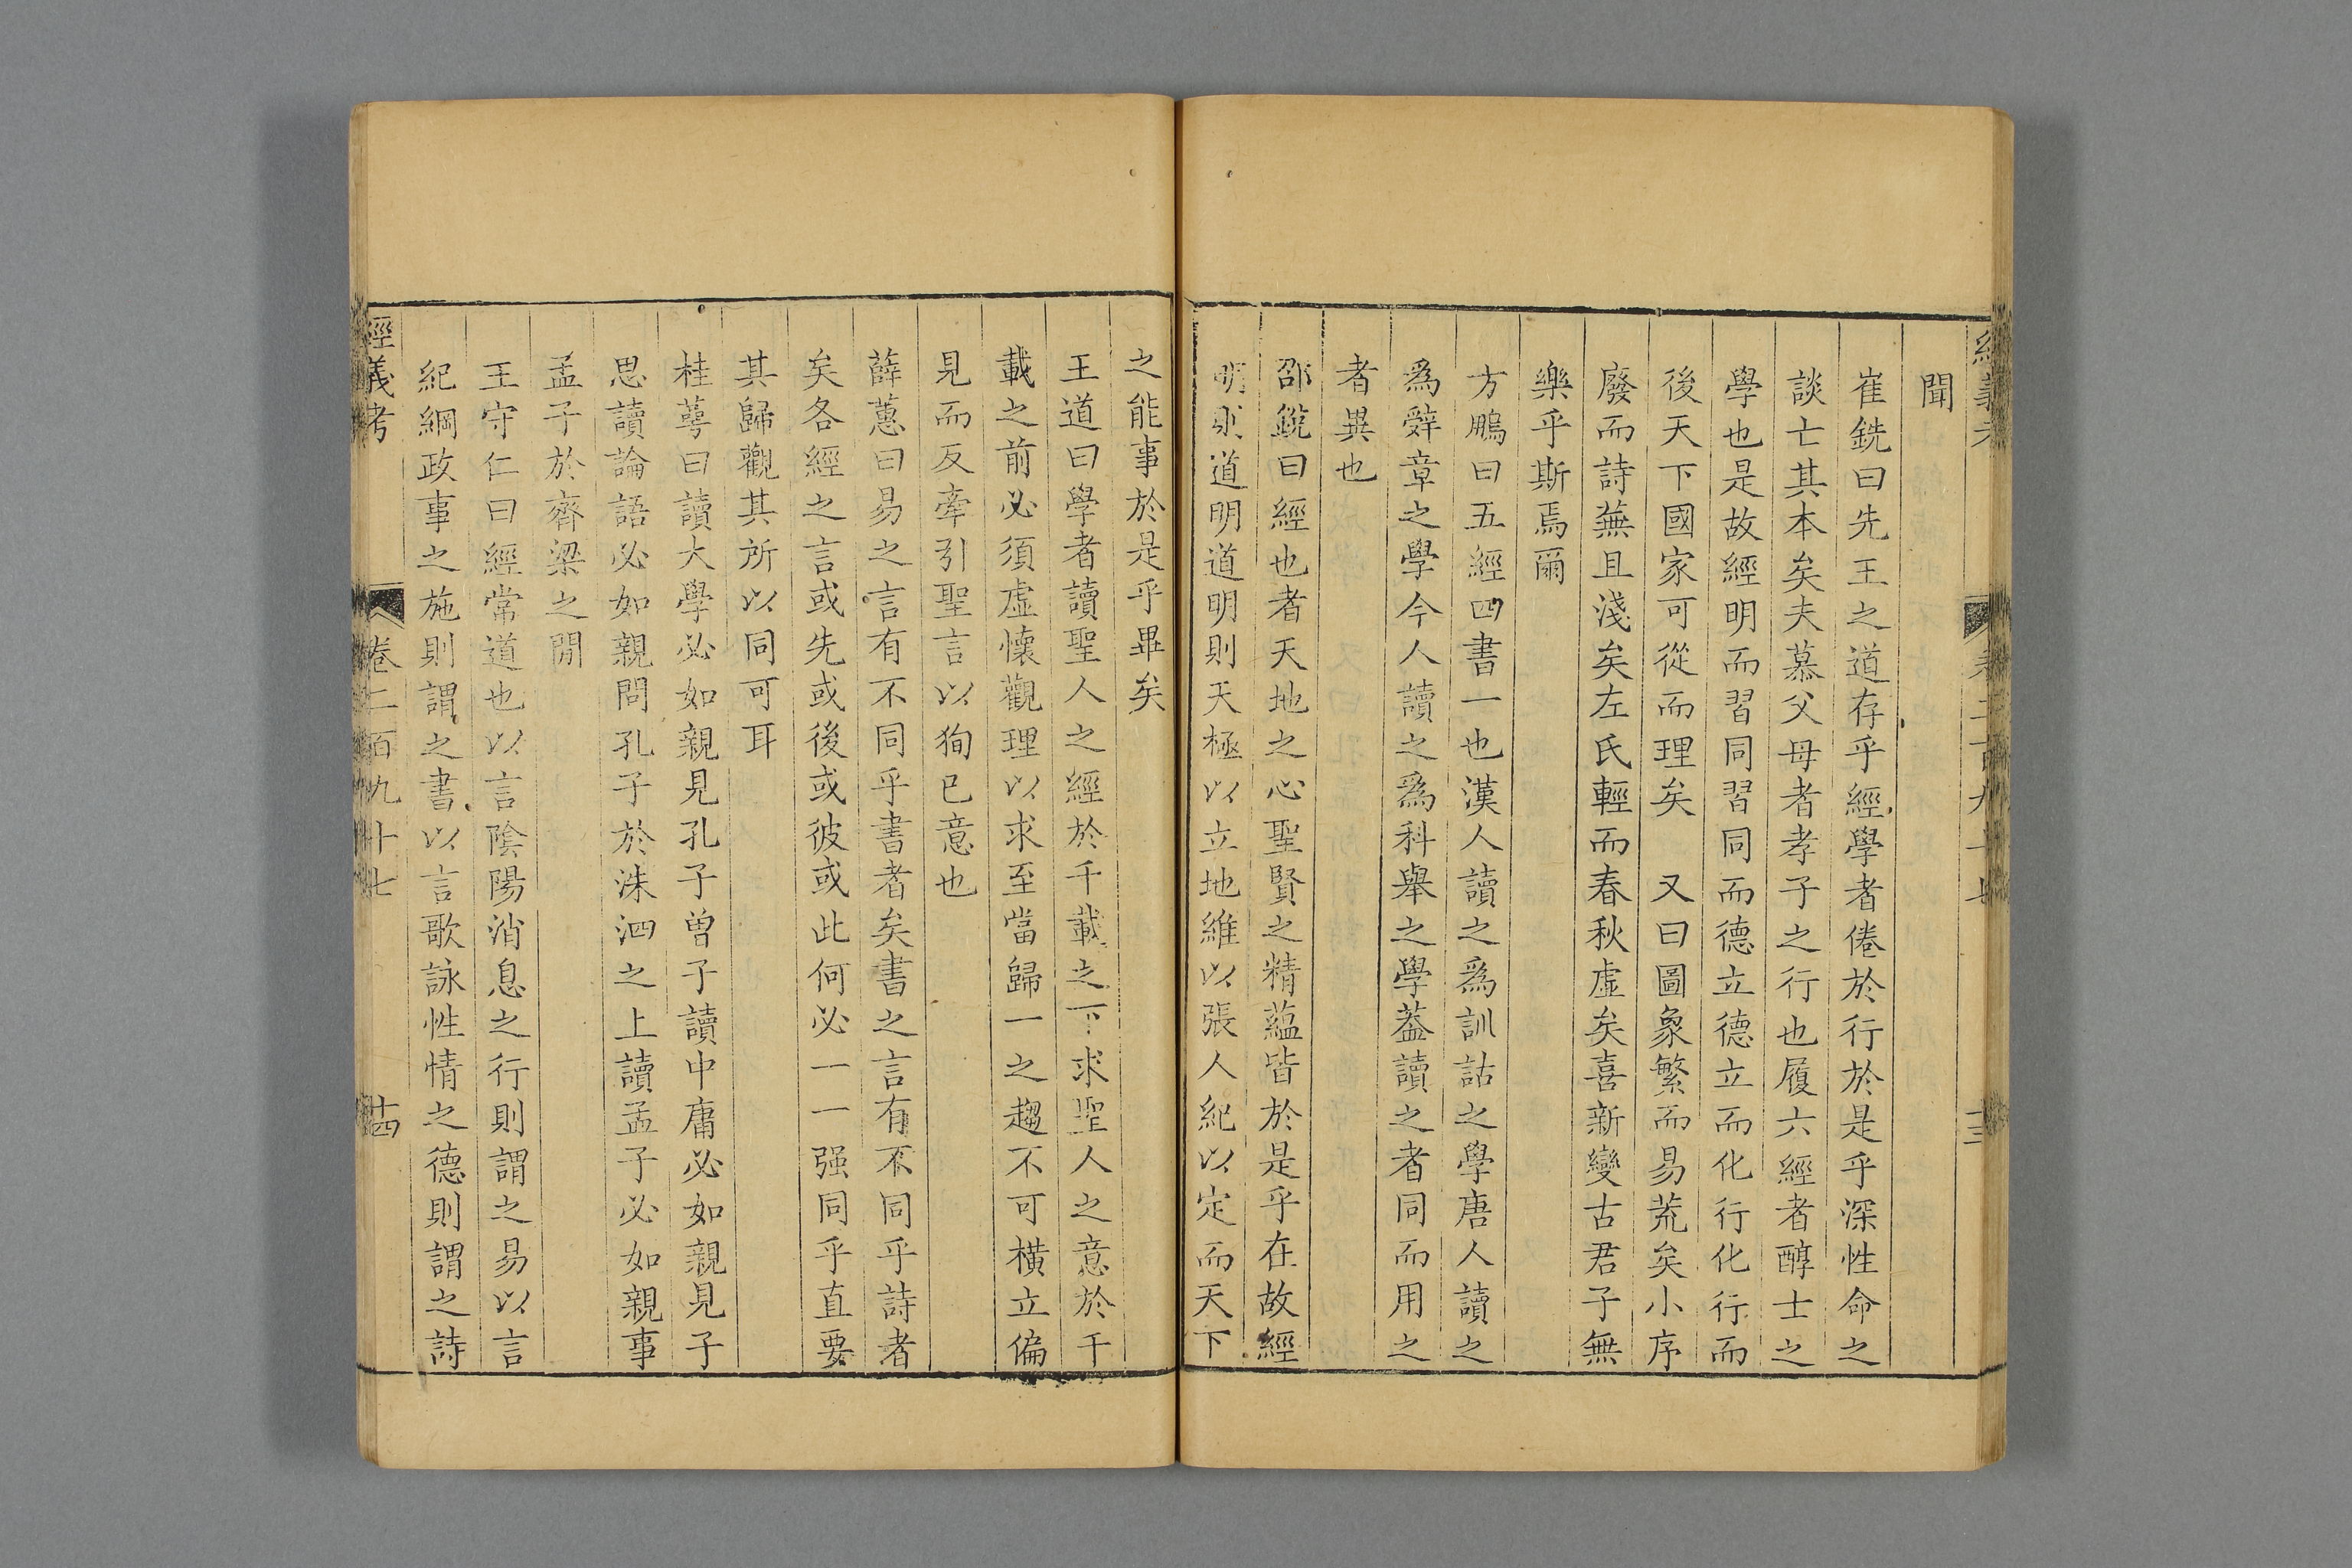 經義考
卷二百九十七
十三
聞
崔銑曰先王之道存乎經學者倦於行於是乎深性命之
談亡其本矣夫慕父母者孝子之行也履六經者醇士之
學也是故經明而習同習同而德立德立而化行化行而
後天下國家可從而理矣　又曰圖象繁而易荒矣小序
廢而詩蕪且淺矣左氏輕而春秋虛矣喜新變古君子無
樂乎斯焉爾
方鵬曰五經四書一也漢人讀之爲訓詁之學唐人讀之
爲辭章之學今人讀之爲科舉之學葢讀之者同而用之
者異也
邵銳曰經也者天地之心聖賢之精蘊皆於是乎在故經
明則道明道明則天極以立地維以張人紀以定而天下
之能事於是乎畢矣
王道曰學者讀聖人之經於千載之下求聖人之意於千
載之前必須虛懷觀理以求至當歸一之趨不可橫立偏
見而反牽引聖言以狥已意也
薛蕙曰易之言有不同乎書者矣書之言有不同乎詩者
矣各經之言或先或後或彼或此何必一一强同乎直要
其歸觀其所以同可耳
桂萼曰讀大學必如親見孔子曾子讀中庸必如親見子
思讀論語必如親問孔子於洙泗之上讀孟子必如親事
孟子於齊梁之閒
王守仁曰經常道也以言陰陽消息之行則謂之易以言
紀綱政事之施則謂之書以言歌詠性情之德則謂之詩
經義考
卷二百九十七
十四